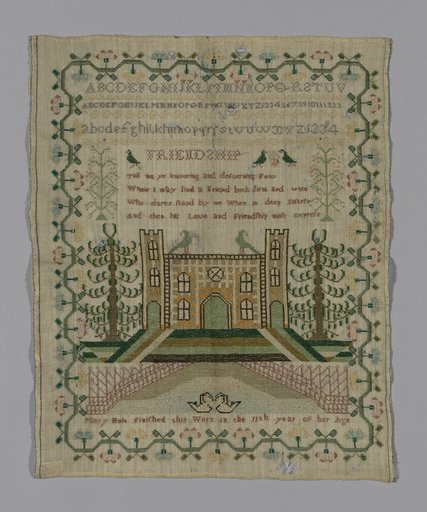 ABCDEFGHIJKLMNOPQRSTUV
ABCDEFGHIJKLMNOPQRSTUVWXYZ1234567891011213
abcdefghiklmnopqrstuvwxyz1234
FRIENDSHIP
Tell me ye knowing and discerning Few
Where I may find a Friend both firm and true
Who dares stand by me When in deep Distress
And then his Love and Friendship most express
Mary Bolt finished this Work in the 11th year of her Age